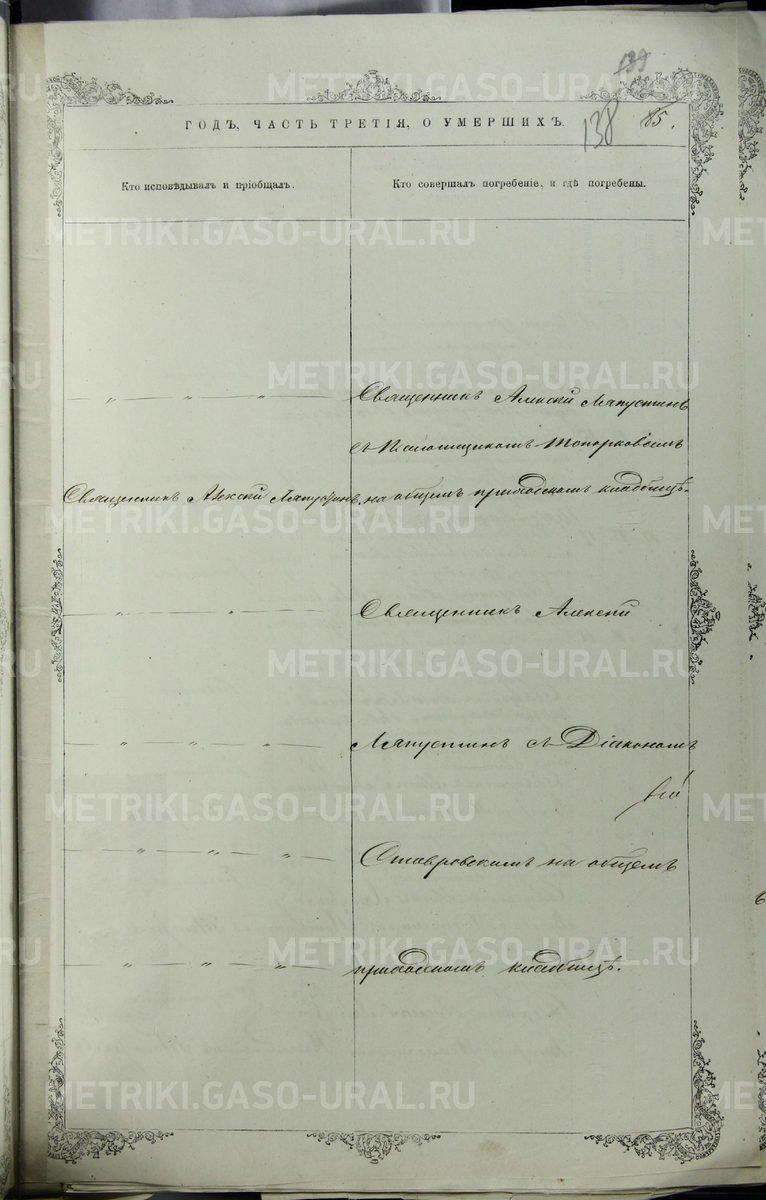 139
ГОДЪ, ЧАСТЬ ТРЕТІЯ, О УМЕРШИХЪ.
138
85.
Кто исповѣдывалъ и пріобщалъ.
Кто совершалъ погребеніе, и гдѣ погребены.
— „ — „ — „ —
Священникъ Алексій Ляпустинъ
съ Псаломщикомъ Топорковымъ
Священникъ Алексій Ляпустинъ.
на общемъ приходскомъ кладбищѣ.
— „ — „ —
Священникъ Алексій
— „ — „ — „ —
Ляпустинъ съ Діакономъ
— „ — „ — „ —
Ставровскимъ на общемъ
— „ — „ — „ —
приходскомъ кладбищѣ.
METRIKI.GASO-URAL.RU